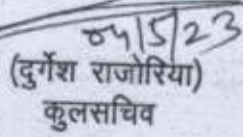 04/5/23
(दुर्गेश राजोरिया)
कुलसचिव